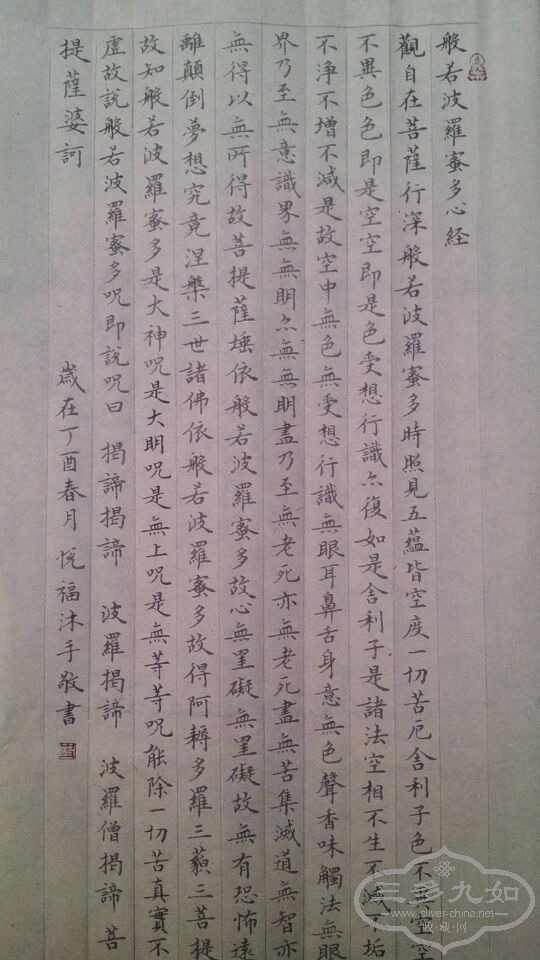 般若波羅蜜多心経
觀自在菩薩行深般若波羅蜜多時照見五蘊皆空度一切苦厄舍利子色不異空空
不異色色即是空空即是色受想行識亦復如是舍利子是諸法空相不生不滅不垢
不淨不增不減是故空中無色無受想行識無眼耳鼻舌身意無色聲香味觸法無眼
界乃至無意識界無無明亦無無明盡乃至無老死亦無老死盡無苦集滅道無智亦
無得以無所得故菩提薩埵依般若波羅蜜多故心無罣礙無罣礙故無有恐怖遠
離顛倒夢想究竟涅槃三世諸佛依般若波羅蜜多故得阿耨多羅三藐三菩提
故知般若波羅蜜多是大神呪是大明呪是無上呪是無等等呪能除一切苦真實不
虛故說般若波羅蜜多呪即說呪曰 揭諦揭諦 波羅揭諦 波羅僧揭諦 菩
提薩婆訶 歲在丁酉春月悅福沐手敬書
三多九如
www.silver-china.net